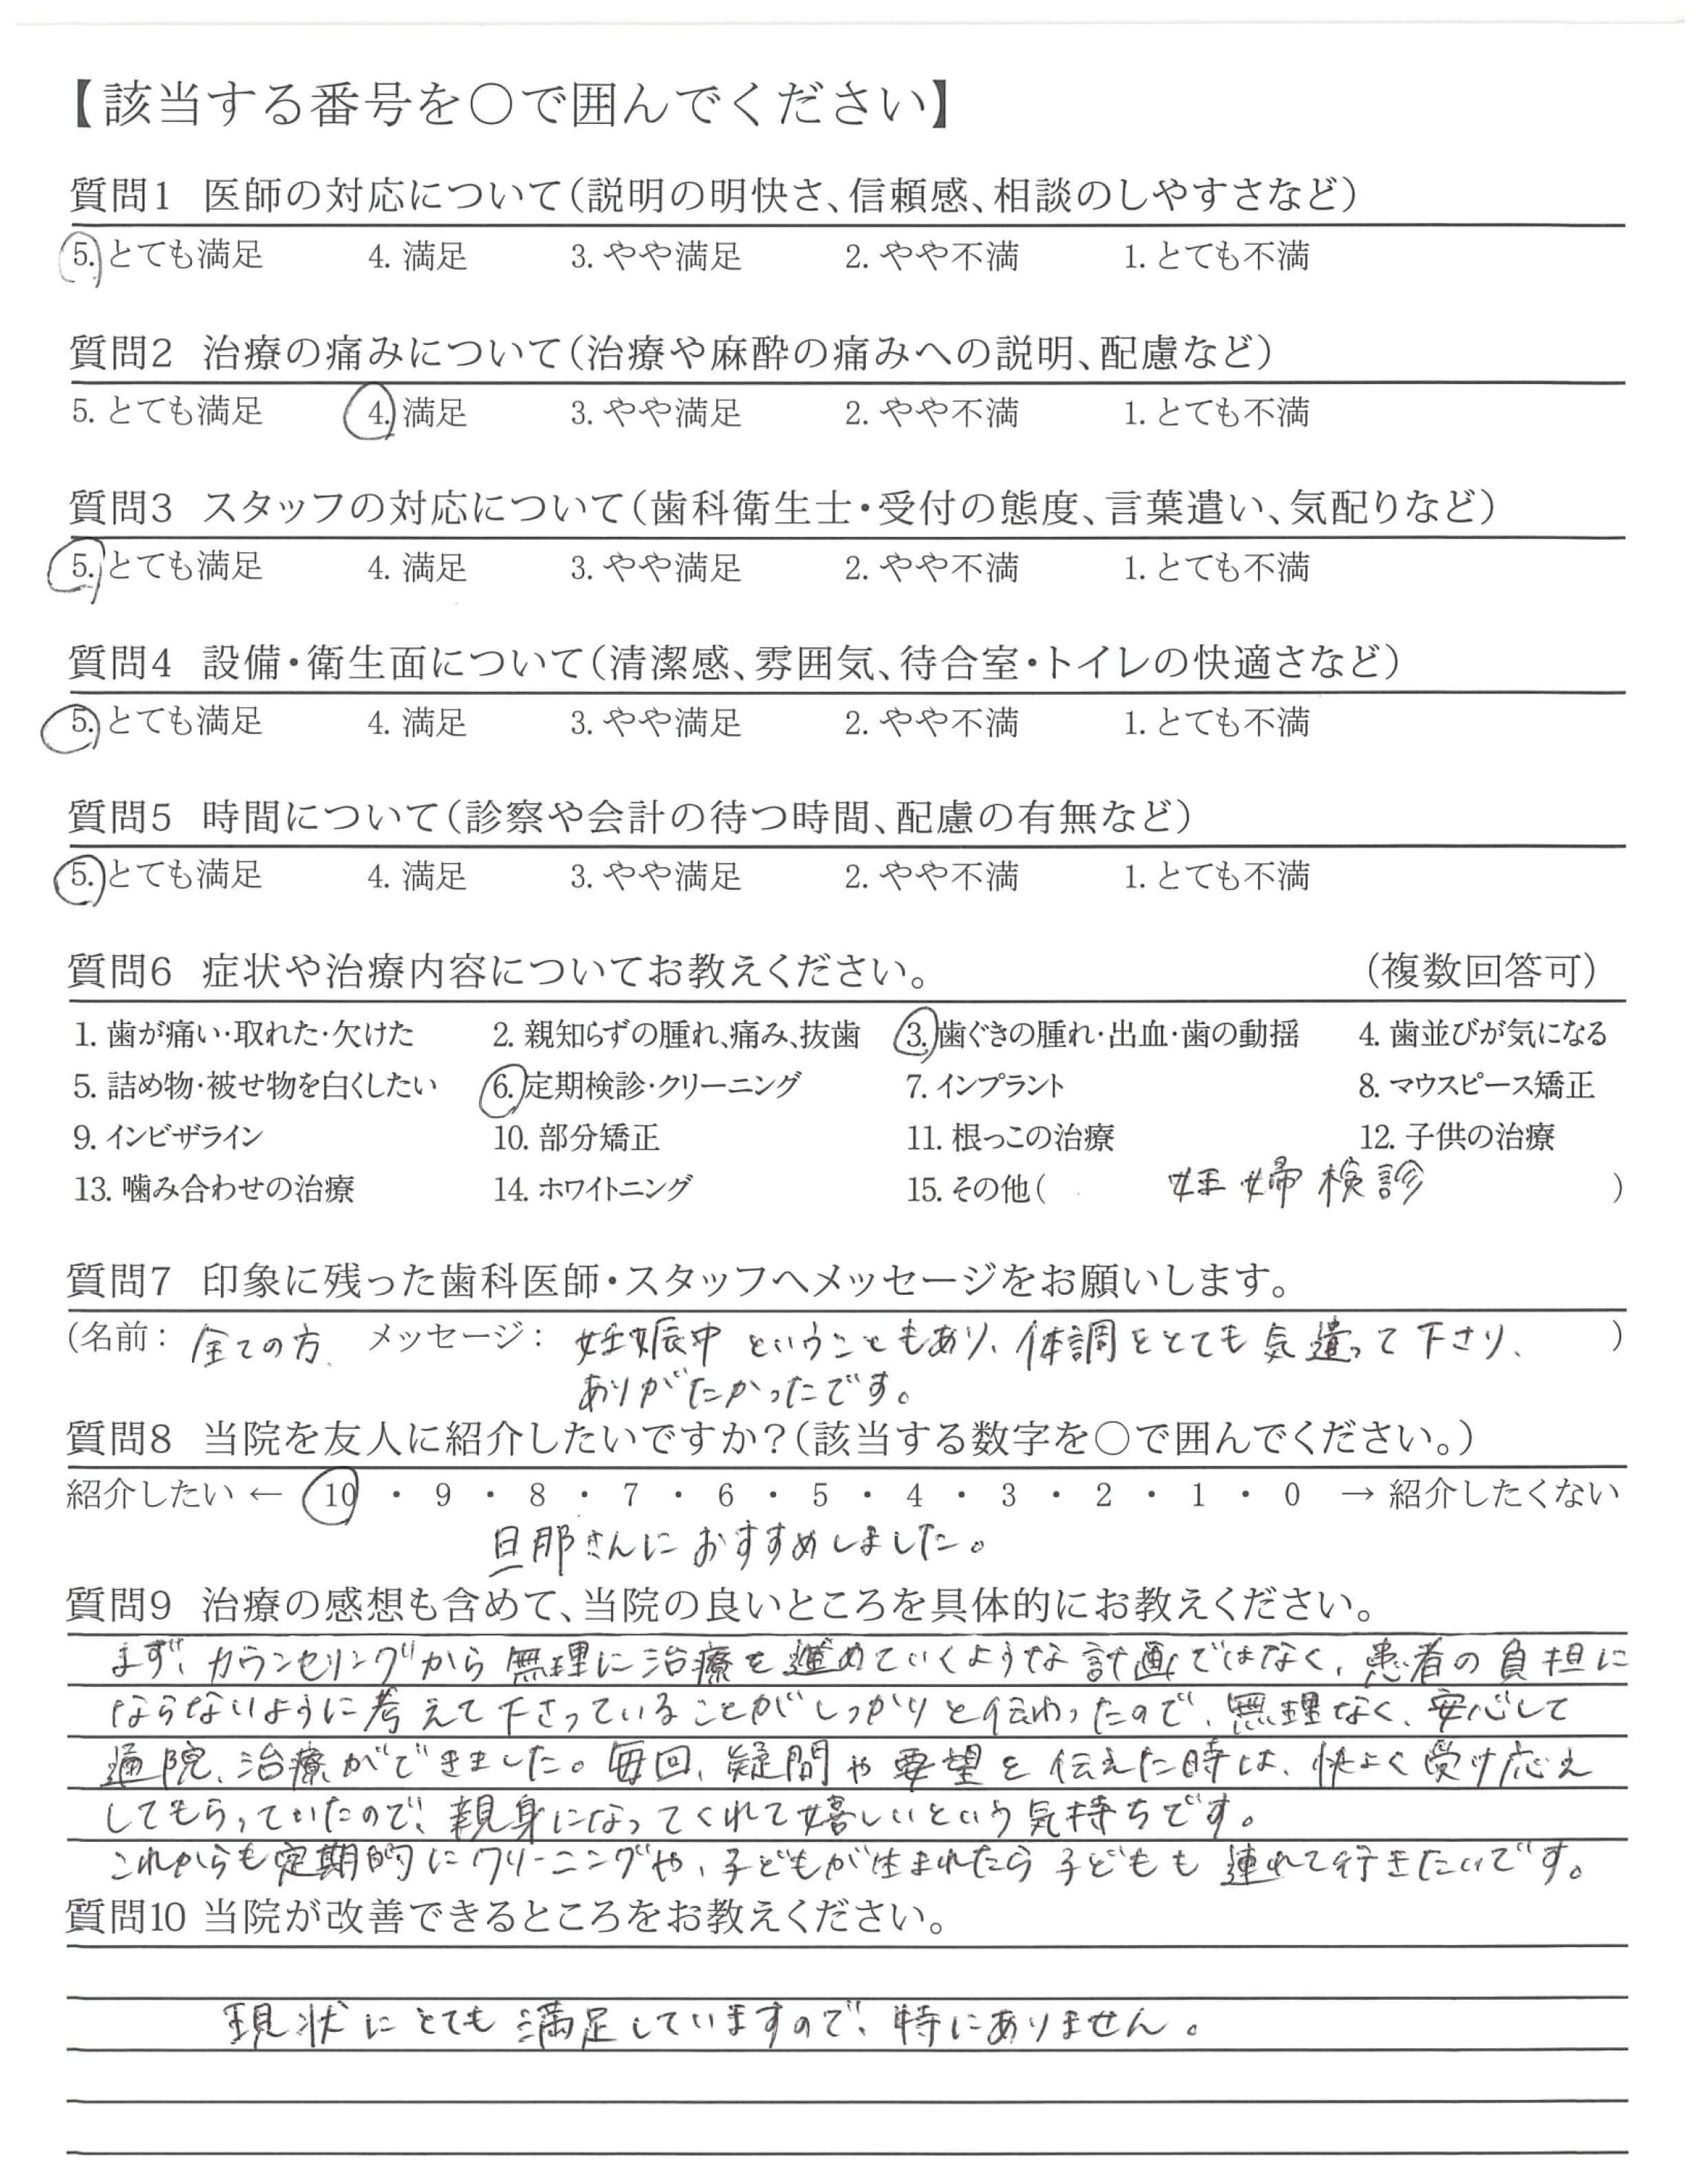 【該当する番号を〇で囲んでください】
質問1 医師の対応について(説明の明快さ、信頼感、相談のしやすさなど)
5. とても満足 4. 満足 3. やや満足 2. やや不満 1. とても不満
質問2 治療の痛みについて(治療や麻酔の痛みへの説明、配慮など)
5. とても満足 4. 満足 3. やや満足 2. やや不満 1. とても不満
質問3 スタッフの対応について(歯科衛生士・受付の態度、言葉遣い、気配りなど)
5. とても満足 4. 満足 3. やや満足 2. やや不満 1. とても不満
質問4 設備・衛生面について(清潔感、雰囲気、待合室・トイレの快適さなど)
5. とても満足 4. 満足 3. やや満足 2. やや不満 1. とても不満
質問5 時間について(診察や会計の待つ時間、配慮の有無など)
5. とても満足 4. 満足 3. やや満足 2. やや不満 1. とても不満
質問6 症状や治療内容についてお教えください。 (複数回答可)
1. 歯が痛い・取れた・欠けた 2. 親知らずの腫れ、痛み、抜歯 3. 歯ぐきの腫れ・出血・歯の動揺 4. 歯並びが気になる
5. 詰め物・被せ物を白くしたい 6. 定期検診・クリーニング 7. インプラント 8. マウスピース矯正
9. インビザライン 10. 部分矯正 11. 根っこの治療 12. 子供の治療
13. 噛み合わせの治療 14. ホワイトニング 15. その他( 妊婦検診 )
質問7 印象に残った歯科医師・スタッフへメッセージをお願いします。
(名前: 全ての方 メッセージ: 妊娠中ということもあり、体調をとても気遣って下さり、 )
ありがたかったです。
質問8 当院を友人に紹介したいですか?(該当する数字を〇で囲んでください。)
紹介したい ← 10 ・ 9 ・ 8 ・ 7 ・ 6 ・ 5 ・ 4 ・ 3 ・ 2 ・ 1 ・ 0 → 紹介したくない
旦那さんにおすすめしました。
質問9 治療の感想も含めて、当院の良いところを具体的にお教えください。
まず、カウンセリングから無理に治療を進めていくような計画ではなく、患者の負担に
ならないように考えて下さっていることがしっかりと伝わったので、無理なく、安心して
通院、治療ができました。毎回、疑問や要望を伝えた時は、快よく受け応え
してもらっていたので、親身になってくれて嬉しいという気持ちです。
これからも定期的にクリーニングや、子どもが生まれたら子どもも連れて行きたいです。
質問10 当院が改善できるところをお教えください。
現状にとても満足していますので、特にありません。